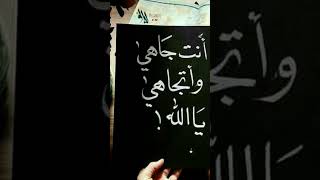 أَنت جَاهي
وأتجاهي
يَا الله !